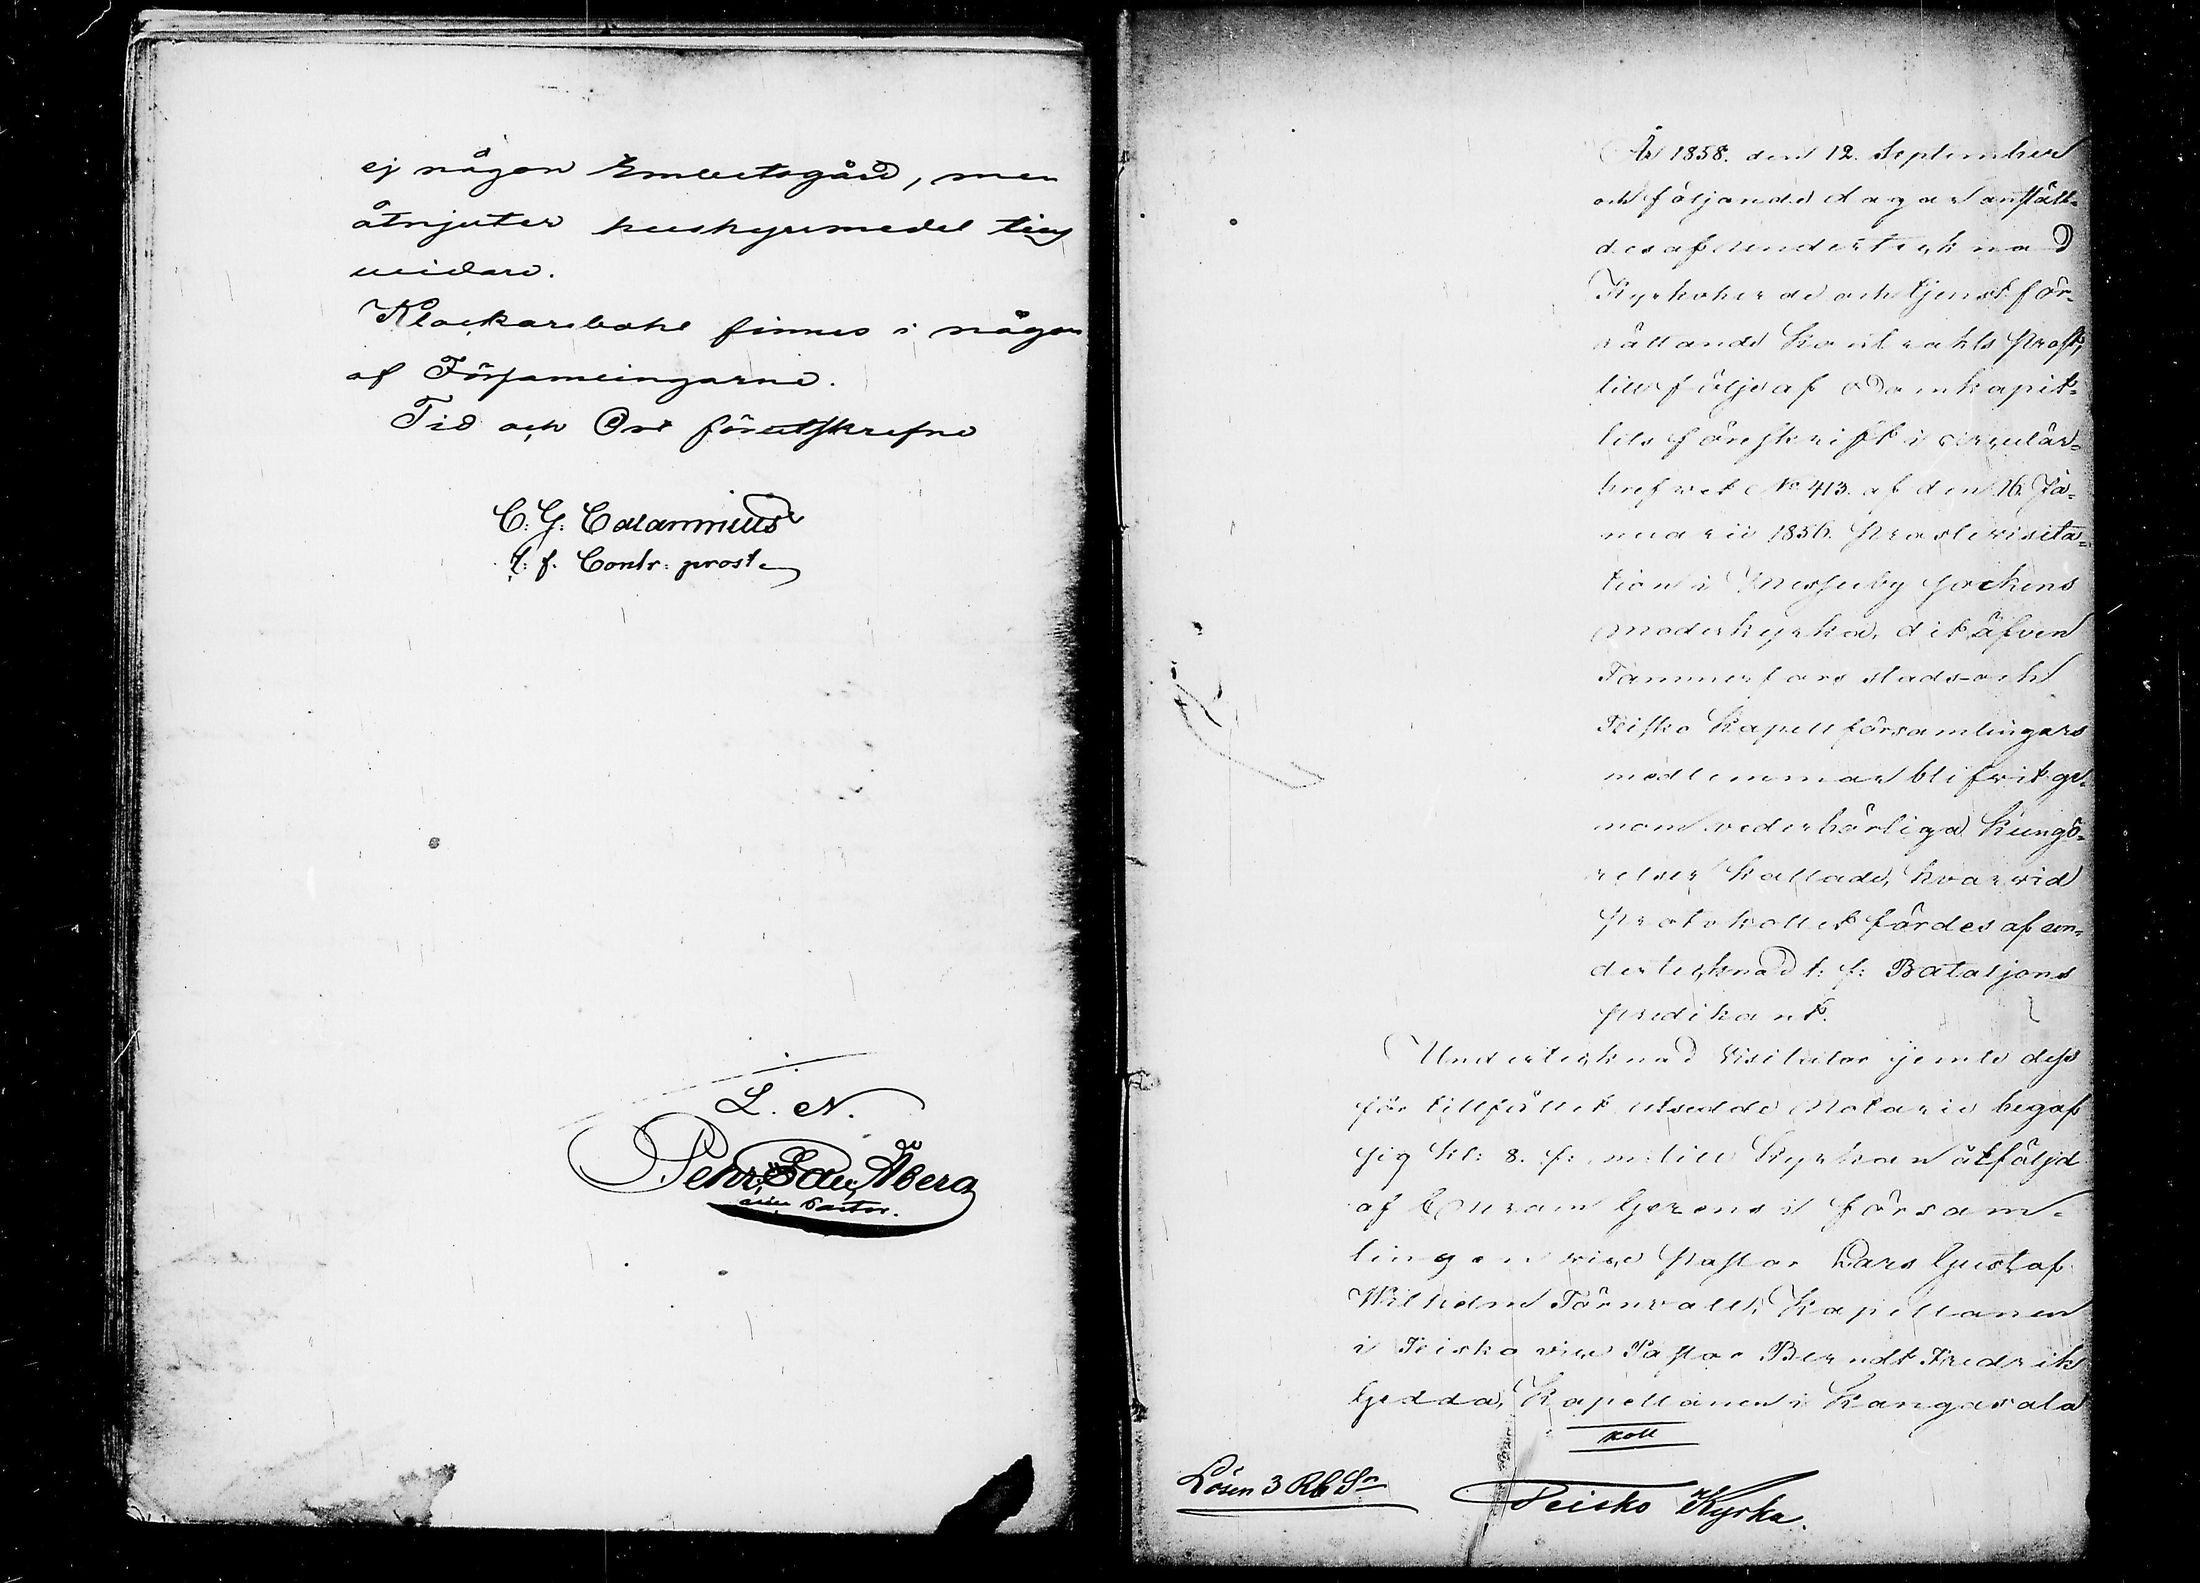 ej någon Embetsgård, men
åtnjuter hushyresmedel tills
vidare.
Klockarebohl finnes i någon
af Församlingarne.
Tid och Ort förutskrefne
C. G. Calamnius
t. f. Contr. prost.
L. N.
Pehr Åberg
Pastor.
År 1858. den 12. September
och följande dagar anställ-
des af undertecknad
Kyrkoherde och tjenstför-
rättande Kontrakts prost,
till följe af Domkapit-
lets föreskrift i cirkulär-
brefvet No 413. af den 16. Ja-
nuarii 1856. prostevisita-
tion i Messuby sockens
moderkyrka, dit äfven
Tammerfors stads- och
Teisko Kapellförsamlingars
medlemmar blifvit ge-
nom vederbörliga Kungö-
relser kallade, hvarvid
protokollet fördes af un-
dertecknad t: f: Bataljons
predikant.
Undertecknad Visitator jemte dess
för tillfället utsedde Notarie begaf
sig kl: 8. f: m: till Kyrkan åtföljd
af Curam Gerens i försam-
lingen vice pastor Lars Gustaf
Wilhelm Törnvall, Kapellanen
i Teisko vice Pastor Berndt Fredrik
Gedda, Kapellanen i Kangasala
koll
Lösen 3 Rb Sr
Teisko Kyrka.